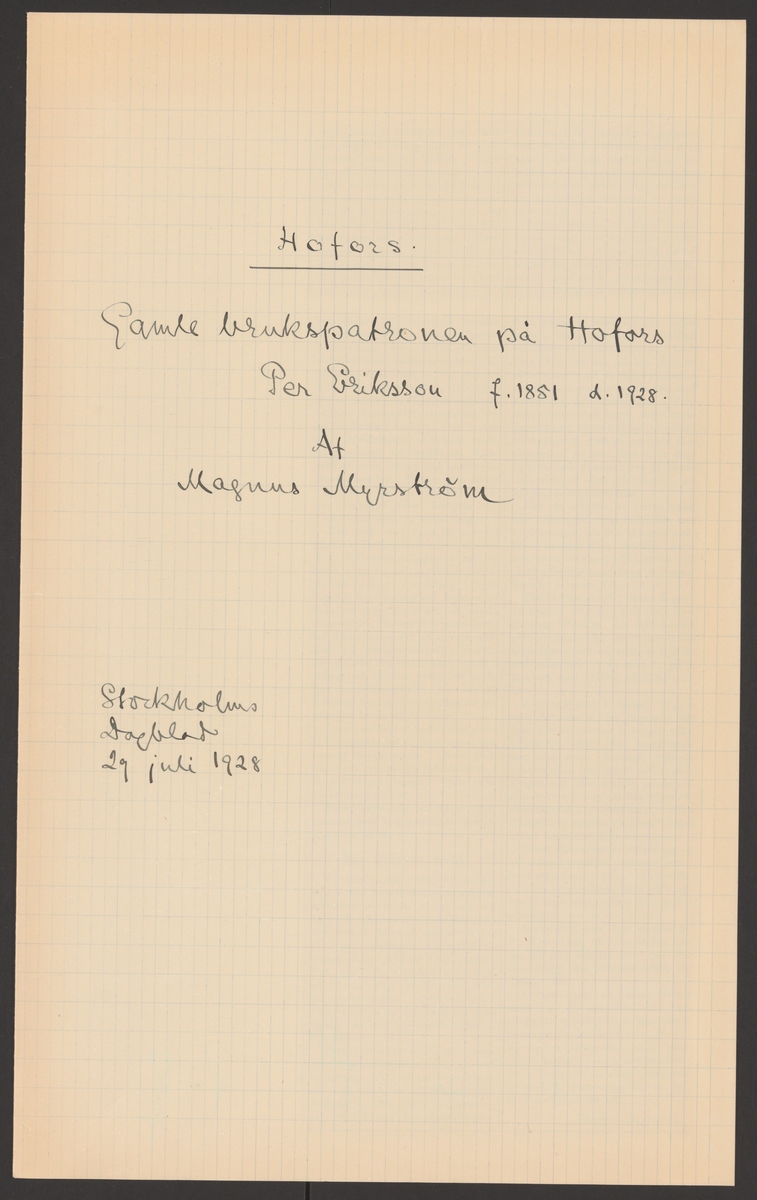 Hofors.
Gamle brukspatronen på Hofors
Per Eriksson f. 1851 d. 1928.
Af
Magnus Myrström
Stockholms
Dagblad
29 juli 1928